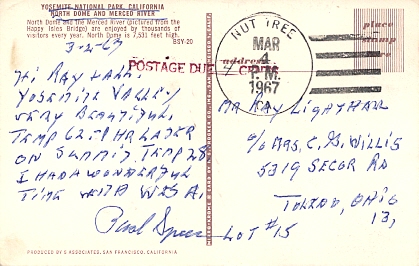 YOSEMITE NATIONAL PARK, CALIFORNIA
NORTH DOME AND MERCED RIVER
North Dome and the Merced River (pictured from the
Happy Isles Bridge) are enjoyed by thousands of
visitors every year. North Dome is 7,531 feet high.
BSY-20
3-2-67
Hi Ray
YOSEMITE VALLEY
VERY BEAUTIFUL.
TEMP 62
ON SUMMIT TEMP 28
I HAD A WONDERFUL
TIME WITH WES A.
Speer
PRODUCED BY C ASSOCIATES, SAN FRANCISCO, CALIFORNIA
POSTAGE DUE CENTS
NUT TREE
MAR
P.M.
1967
place
stamp
here
address
MR RAY LIGHTHALL
c/o MRS, C. G. WILLIS
5319 SECOR RD
TOLEDO, OHIO
13,
LOT #15